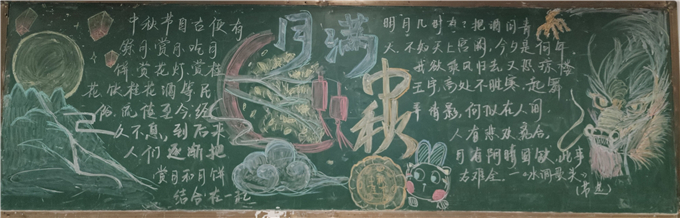 中秋节自古便有
祭月、赏月、吃月
饼、赏花灯、赏桂
花、饮桂花酒等民
俗,流传至今,经
久不息,到后来
人们逐渐把
赏月和月饼
结合在一起
月满
中秋
明月几时有?把酒问青
天。不知天上宫阙,今夕是何年。
我欲乘风归去,又恐琼楼
玉宇,高处不胜寒。起舞
弄清影,何似在人间
人有悲欢离合,
月有阴晴圆缺,此事
古难全。一《水调歌头》